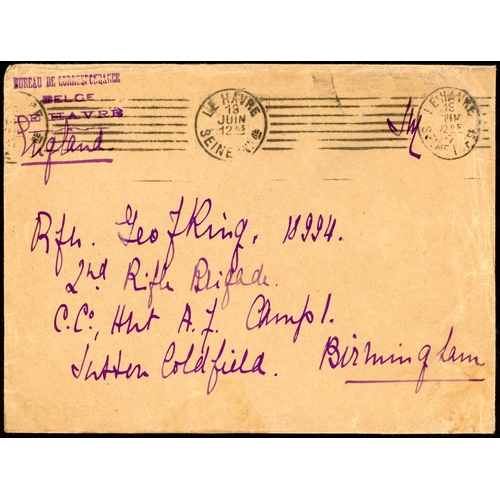 BUREAU DE CORRESPONDANCE
BELGE
LE HAVRE
England
LE HAVRE
19
JUIN
1245
SEINE
LE HAVRE
19
JUIN
1245
Rfn. Geo J King, 18994.
2nd Rifle Brigade
C. Co, Hut A.J. Camp 1.
Sutton Coldfield. Birmingham